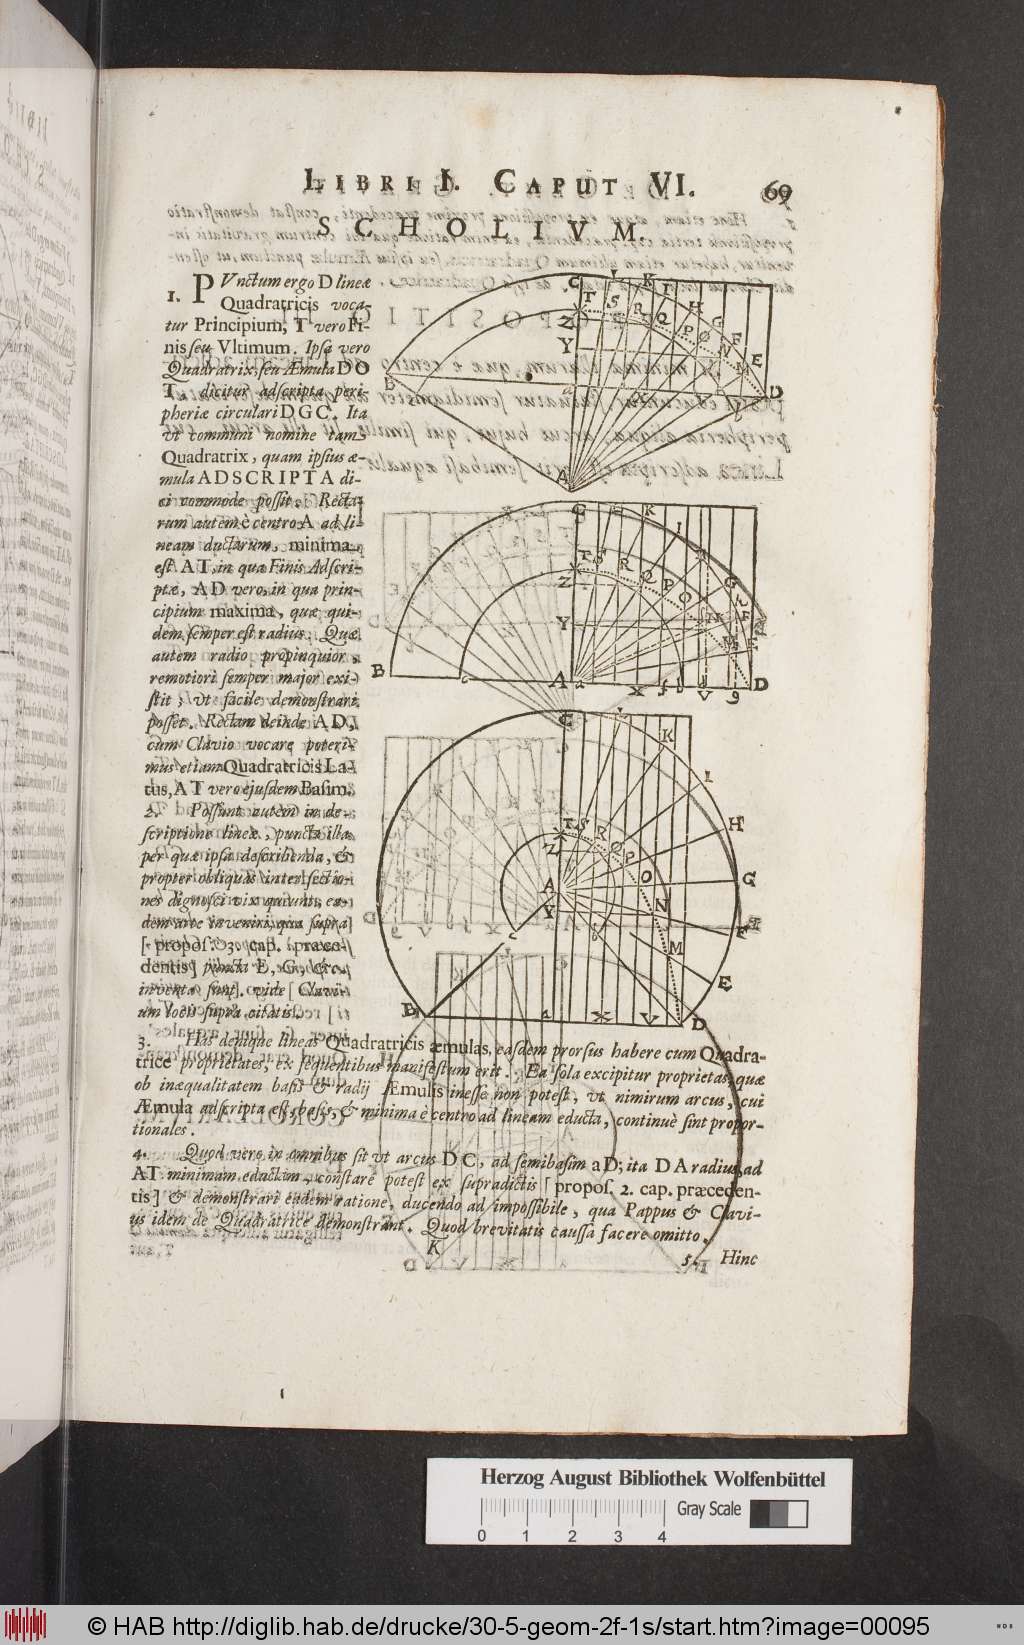 LIBRI I. CAPUT VI. 69
SCHOLIVM.
1. PVnctum ergo D lineæ
Quadratricis voca-
tur Principium, T vero Fi-
nis seu Vltimum. Ipsa vero
Quadratrix seu Æmula DO
T, dicitur adscripta peri-
pheriæ circulari DGC. Ita
vt communi nomine tam
Quadratrix, quam ipsius æ-
mula ADSCRIPTA di-
ci commode possit. Recta-
rum autem è centro A ad li-
neam ductarum, minima
est AT, in qua Finis Adscri-
ptæ, AD vero, in qua prin-
cipium maxima, quæ qui-
dem semper est radius. Quæ
autem radio propinquior,
remotiori semper major exi-
stit, vt facile demonstrari
posset. Rectam deinde AD,
cum Clavio vocare poteri-
mus etiam Quadratricis La-
tus, AT vero ejusdem Basim.
2. Possunt autem in de-
scriptione lineæ, puncta illa
per quæ ipsa describenda, &
propter obliquas intersectio-
nes dignosci vix quiunt, ea-
dem arte inveniri, qua supra
[propos. 3. cap. præce-
dentis] puncta E, G, &c.
inventa sunt. vide [Clavi-
um loco supra citatis.]
3. Has denique lineas Quadratricis æmulas, easdem prorsus habere cum Quadra-
trice proprietates, ex sequentibus manifestum erit. Ea sola excipitur proprietas, quæ
ob inæqualitatem basis & radij Æmulis inesse non potest, vt nimirum arcus, cui
Æmula adscripta est, basis, & minima è centro ad lineam educta, continuè sint propor-
tionales.
4. Quod vero in omnibus sit vt arcus DC, ad semibasim aD; ita DA radius, ad
AT minimam eductam, constare potest ex supradictis [propos. 2. cap. præceden-
tis] & demonstrari eadem ratione, ducendo ad impossibile, qua Pappus & Clavi-
us idem de Quadratrice demonstrant. Quod brevitatis caussa facere omitto.
5. Hinc
C K I H G F E D
T S R Q P O N M
Z Y B a b A
C K I G F E D
T S R Q P O N M
Z Y B c A a X f V g
C K I H G F E D
T S R Q P O N M
Z A Y c b B a X V
K
Herzog August Bibliothek Wolfenbüttel
0 1 2 3 4 Gray Scale
© HAB http://diglib.hab.de/drucke/30-5-geom-2f-1s/start.htm?image=00095